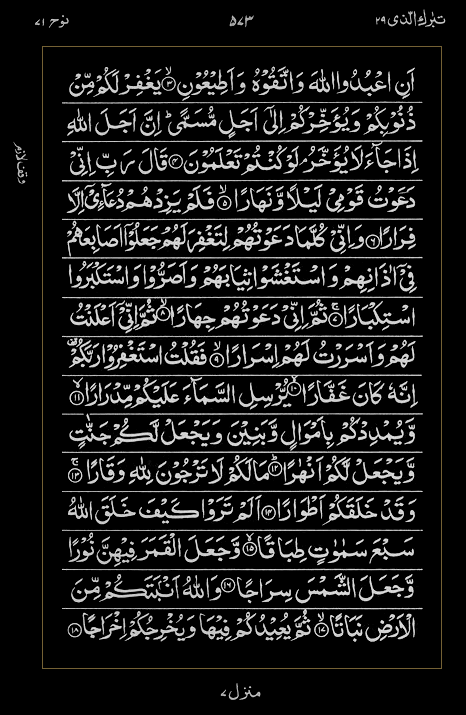 تبٰرك الذی ٢٩ ٥٧٣ نوح ٧١
اَنِ اعْبُدُوا اللّٰهَ وَاتَّقُوْهُ وَاَطِیْعُوْنِ ۙ﴿٣﴾ یَغْفِرْ لَكُمْ مِّنْ
ذُنُوْبِكُمْ وَیُؤَخِّرْكُمْ اِلٰۤی اَجَلٍ مُّسَمًّی ؕ اِنَّ اَجَلَ اللّٰهِ
اِذَا جَآءَ لَا یُؤَخَّرُ ۘ لَوْ كُنْتُمْ تَعْلَمُوْنَ ﴿٤﴾ قَالَ رَبِّ اِنِّیْ
وقف لازم
دَعَوْتُ قَوْمِیْ لَیْلًا وَّنَهَارًا ۙ﴿٥﴾ فَلَمْ یَزِدْهُمْ دُعَآءِیْۤ اِلَّا
فِرَارًا ﴿٦﴾ وَاِنِّیْ كُلَّمَا دَعَوْتُهُمْ لِتَغْفِرَ لَهُمْ جَعَلُوْۤا اَصَابِعَهُمْ
فِیْۤ اٰذَانِهِمْ وَاسْتَغْشَوْا ثِیَابَهُمْ وَاَصَرُّوْا وَاسْتَكْبَرُوا
اسْتِكْبَارًا ۚ﴿٧﴾ ثُمَّ اِنِّیْ دَعَوْتُهُمْ جِهَارًا ۙ﴿٨﴾ ثُمَّ اِنِّیْۤ اَعْلَنْتُ
لَهُمْ وَاَسْرَرْتُ لَهُمْ اِسْرَارًا ۙ﴿٩﴾ فَقُلْتُ اسْتَغْفِرُوْا رَبَّكُمْ ؕ
اِنَّهٗ كَانَ غَفَّارًا ۙ﴿١٠﴾ یُّرْسِلِ السَّمَآءَ عَلَیْكُمْ مِّدْرَارًا ۙ﴿١١﴾
وَّیُمْدِدْكُمْ بِاَمْوَالٍ وَّبَنِیْنَ وَیَجْعَلْ لَّكُمْ جَنّٰتٍ
وَّیَجْعَلْ لَّكُمْ اَنْهٰرًا ؕ﴿١٢﴾ مَا لَكُمْ لَا تَرْجُوْنَ لِلّٰهِ وَقَارًا ۚ﴿١٣﴾
وَقَدْ خَلَقَكُمْ اَطْوَارًا ﴿١٤﴾ اَلَمْ تَرَوْا كَیْفَ خَلَقَ اللّٰهُ
سَبْعَ سَمٰوٰتٍ طِبَاقًا ۙ﴿١٥﴾ وَّجَعَلَ الْقَمَرَ فِیْهِنَّ نُوْرًا
وَّجَعَلَ الشَّمْسَ سِرَاجًا ﴿١٦﴾ وَاللّٰهُ اَنْۢبَتَكُمْ مِّنَ
الْاَرْضِ نَبَاتًا ۙ﴿١٧﴾ ثُمَّ یُعِیْدُكُمْ فِیْهَا وَیُخْرِجُكُمْ اِخْرَاجًا ﴿١٨﴾
منزل ٧